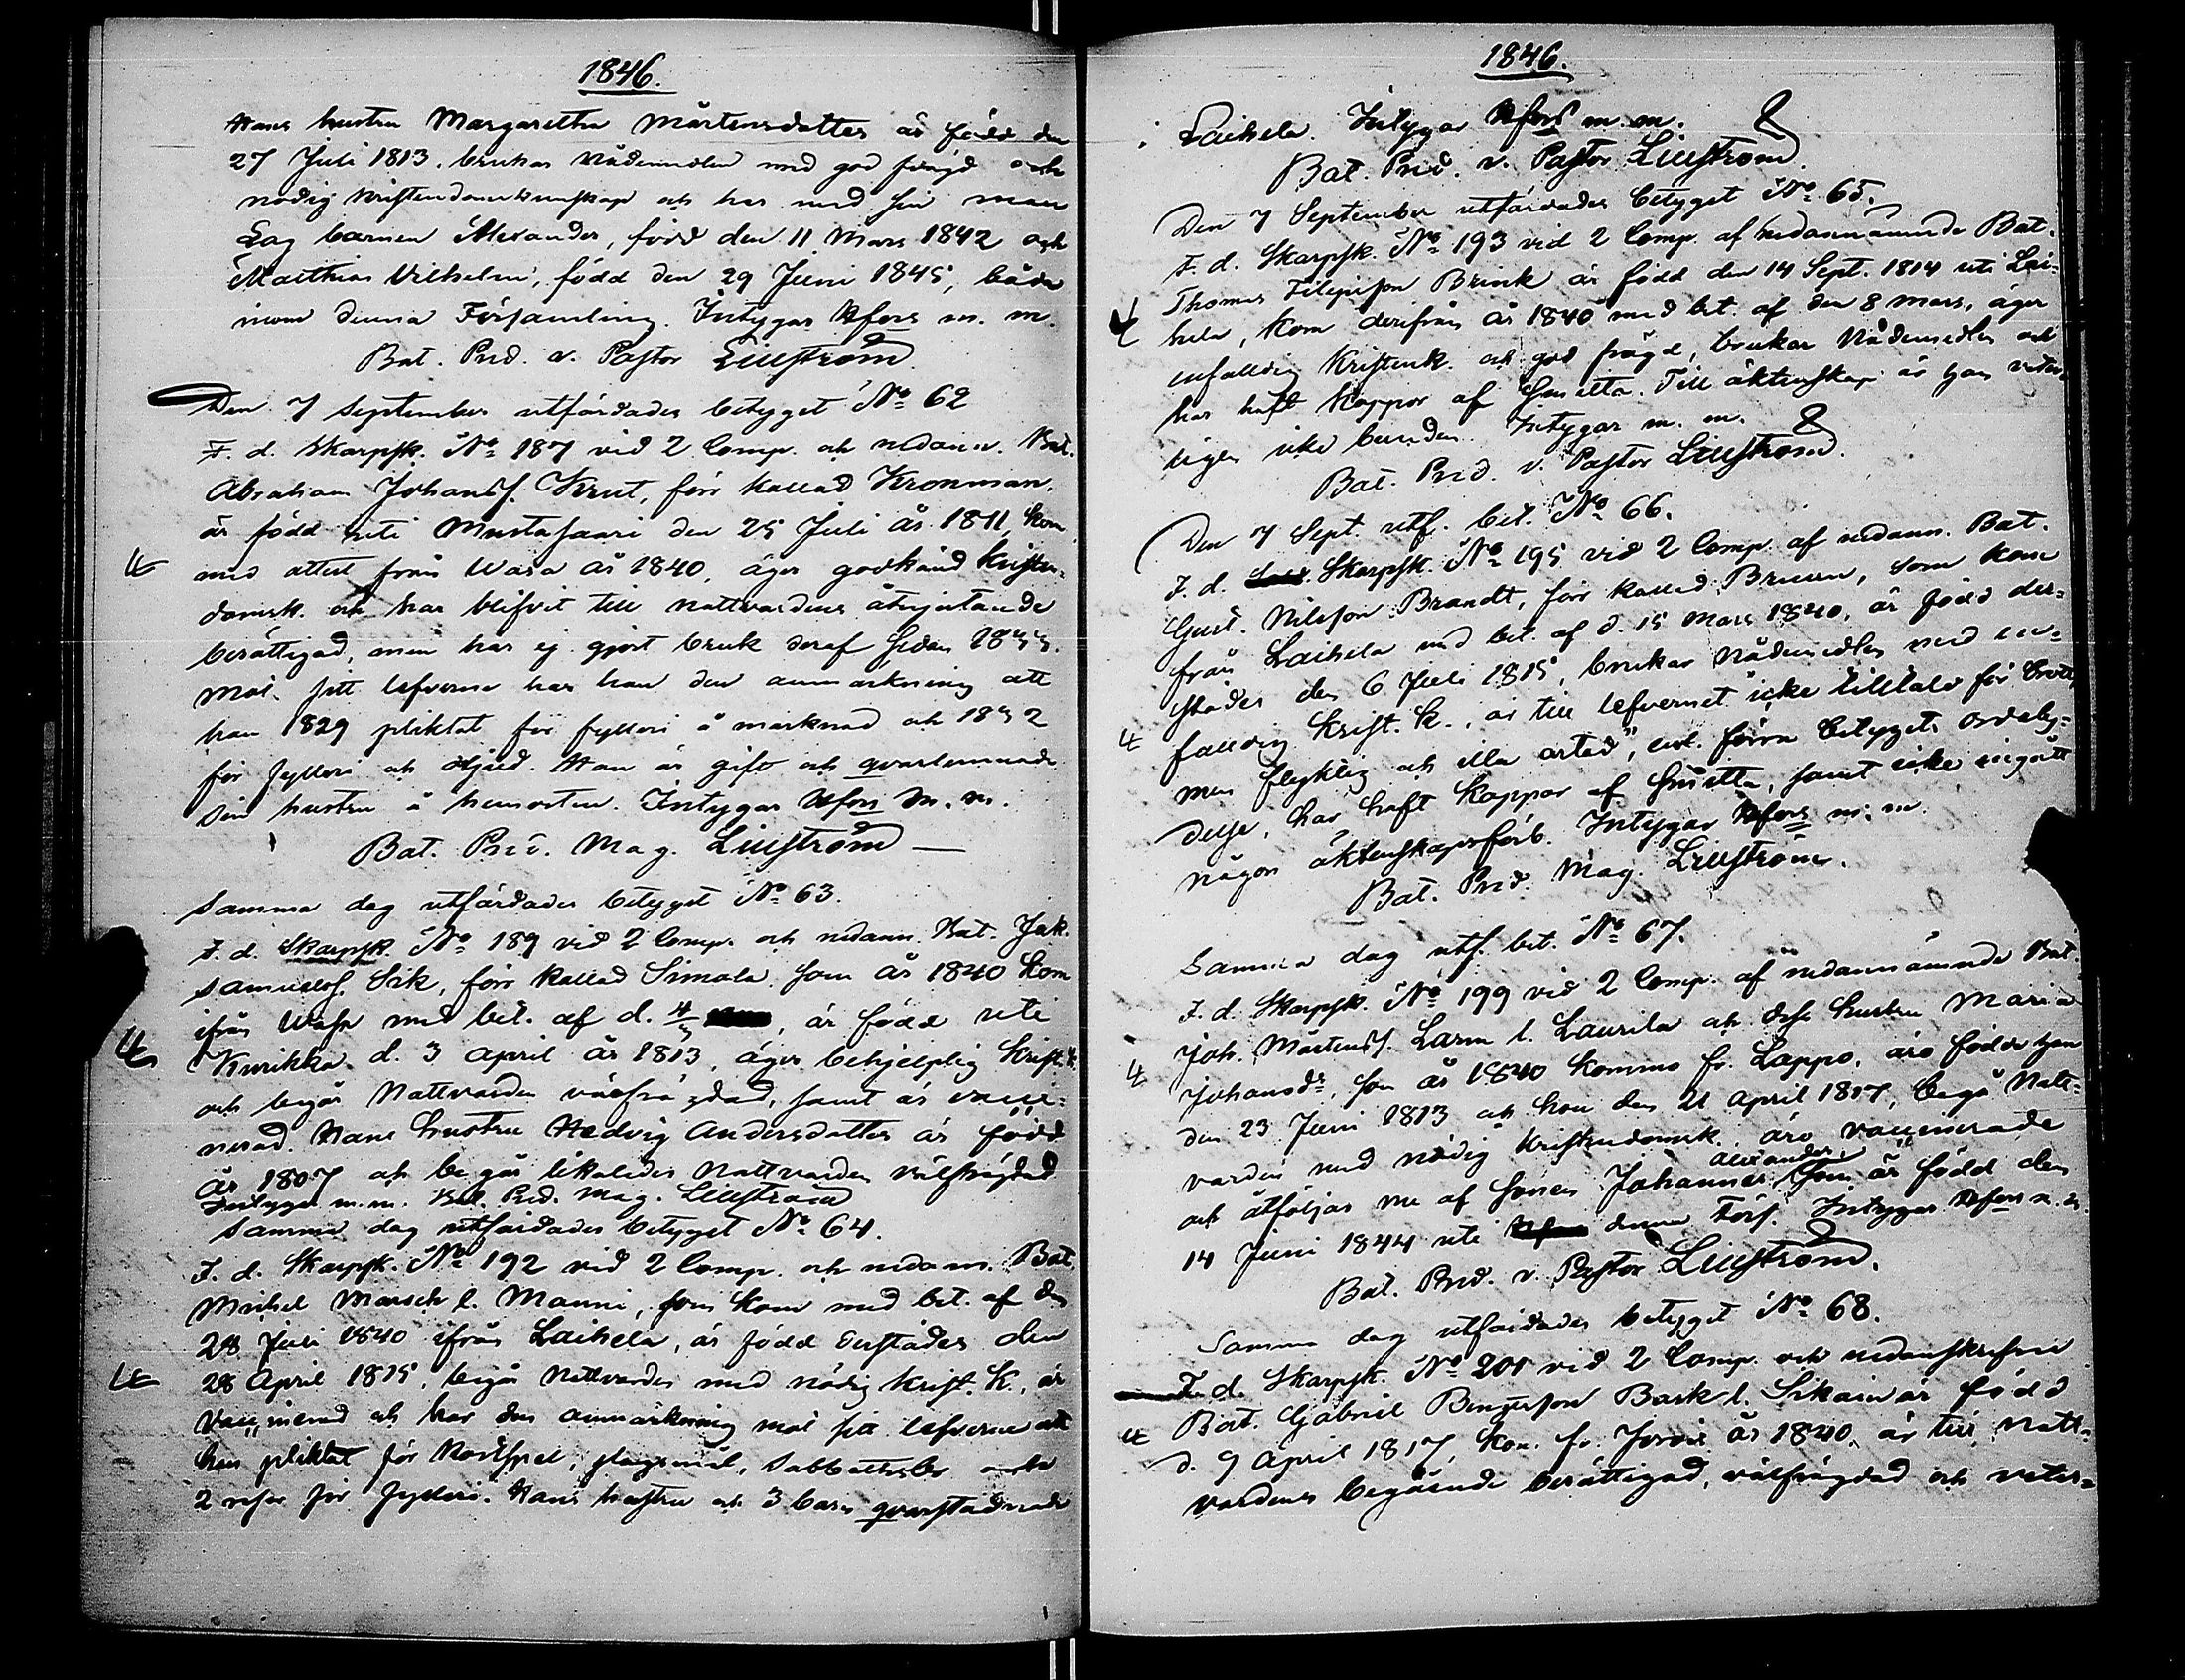 1846.
Hans hustru Margaretha Mårtensdotter är född den
27 Juli 1813. brukar Nådemedlen med god frägd och
nödig kristendomskunskap och har med sin man
Lag barnen Alexander, född den 11 Mars 1842 och
Matthias Vilhelm, född den 29 Juni 1845, båda
inom denna Församling. Intygar Hfors m. m.
Bat. Pred. v. Pastor Liliström
Den 7 September utfärdades betyget No 62
F. d. Skarpsk. No 187 vid 2 Comp. och nedann. Bat.
Abraham Johanss. Krut, förr kallad Kronman.
är född uti Mustasaari den 25 Juli år 1811, kom
med attest från Wasa år 1840, äger godkänd kristen-
domsk. och har blifvit till nattvardens åtnjutande
berättigad, men har ej gjort bruk deraf sedan
Mot sitt lefverne har han den anmärkning att
han 1829 pliktat för fylleri å marknad och
för fylleri och. Han är gift och qvarlemnade
sin hustru å hemorten. Intygar Hfors m. m.
Bat. Pred. Mag. Liliström —
Samma dag utfärdades betyget No 63.
F. d. Skarpsk. No 189 vid 2 Comp. och nedann. Bat. Jak.
Samuelss. Sik, förr kallad Simola som år 1840 kom
ifrån Wasa med bet. af d. är född uti
Kurikka d. 3 April år 1813, äger behjelplig Krist. k.
och begår Nattvarden välfrägdad, samt är vacci-
nerad. Hans hustru Hedvig Andersdotter är född
år 1807 och begår likaledes Nattvarden välfrägdad
Intygar m. m. Bat. Pred. Mag. Liliström
Samma dag utfärdades betyget No 64.
F. d. Skarpsk. No 192 vid 2 Comp. och nedann. Bat.
Michel Marsch l. Manni, som kom med bet. af den
28 Juli 1840 ifrån Laihela, är född derstädes den
28 April 1815, begår Nattvarden med nödig Krist. K., är
vaccinerad och har den anmärkning mot sitt lefverne att
han pliktat för Kortspel, slagsmål, sabbatsbr. och
2 resor för fylleri. Hans hustru och 3 barn qvarstadnade
1846.
i Laihela. Intygar Hfors m. m.
Bat. Pred. v. Pastor Liliström
Den 7 September utfärdades betyget No 65.
F. d. Skarpsk. No 193 vid 2 Comp. af nedannämnde Bat.
Thomas Filipsson Brink är född den 14 Sept. 1814 uti Lai-
hela, kom derifrån år 1840 med bet. af den 8 Mars, äger
enfaldig Kristenk. och god frägd, brukar Nådemedlen och
har haft koppor af smitta. Till äktenskap är han veter-
ligen icke bunden. Intygar m. m.
Bat. Pred. v. Pastor Liliström
Den 7 Sept. utf. bet. No 66.
F. d. Skarpsk. No 195 vid 2 Comp. af nedann. Bat.
Gust. Nilsson Brandt, förr kallad, som kom
från Laihela med bet. af d. 15 Mars 1840, är född der-
städes den 6 Juli 1815, brukar Nådemedlen med en-
faldig Krist. k., är till lefvernet "icke tilltald för brott,
men flyktig och illa artad", enl. förra betygets ordaly-
delse, har haft koppor af smitta, samt icke ingått
någon äktenskapsförb. Intygar Hfors m. m.
Bat. Pred. Mag. Liliström.
Samma dag utf. bet. No 67.
F. d. Skarpsk. No 199 vid 2 Comp. af nedannämnde Bat.
Joh. Mårtenss. Larm l. Laurila och dess hustru Maria
Johansdr, som år 1840 kommo fr. Lappo, äro födde han
den 23 Juni 1813 och hon den 21 April 1817, begå Natt-
varden med nödig Kristendomsk. äro vaccinerade
och åtföljas nu af sonen Johannes Alexander som är född den
14 Juni 1844 uti denna Förs. Intygar Hfors m. m.
Bat. Pred. v. Pastor Liliström.
Samma dag utfärdades betyget No 68.
F. d. Skarpsk. No 201 vid 2 Comp. och nedanskrifne
Bat. Gabriel Bengtsson Bark l. är född
d. 9 April 1817, kom fr. år 1840. är till Natt-
vardens begående berättigad, välfrägdad och veter-